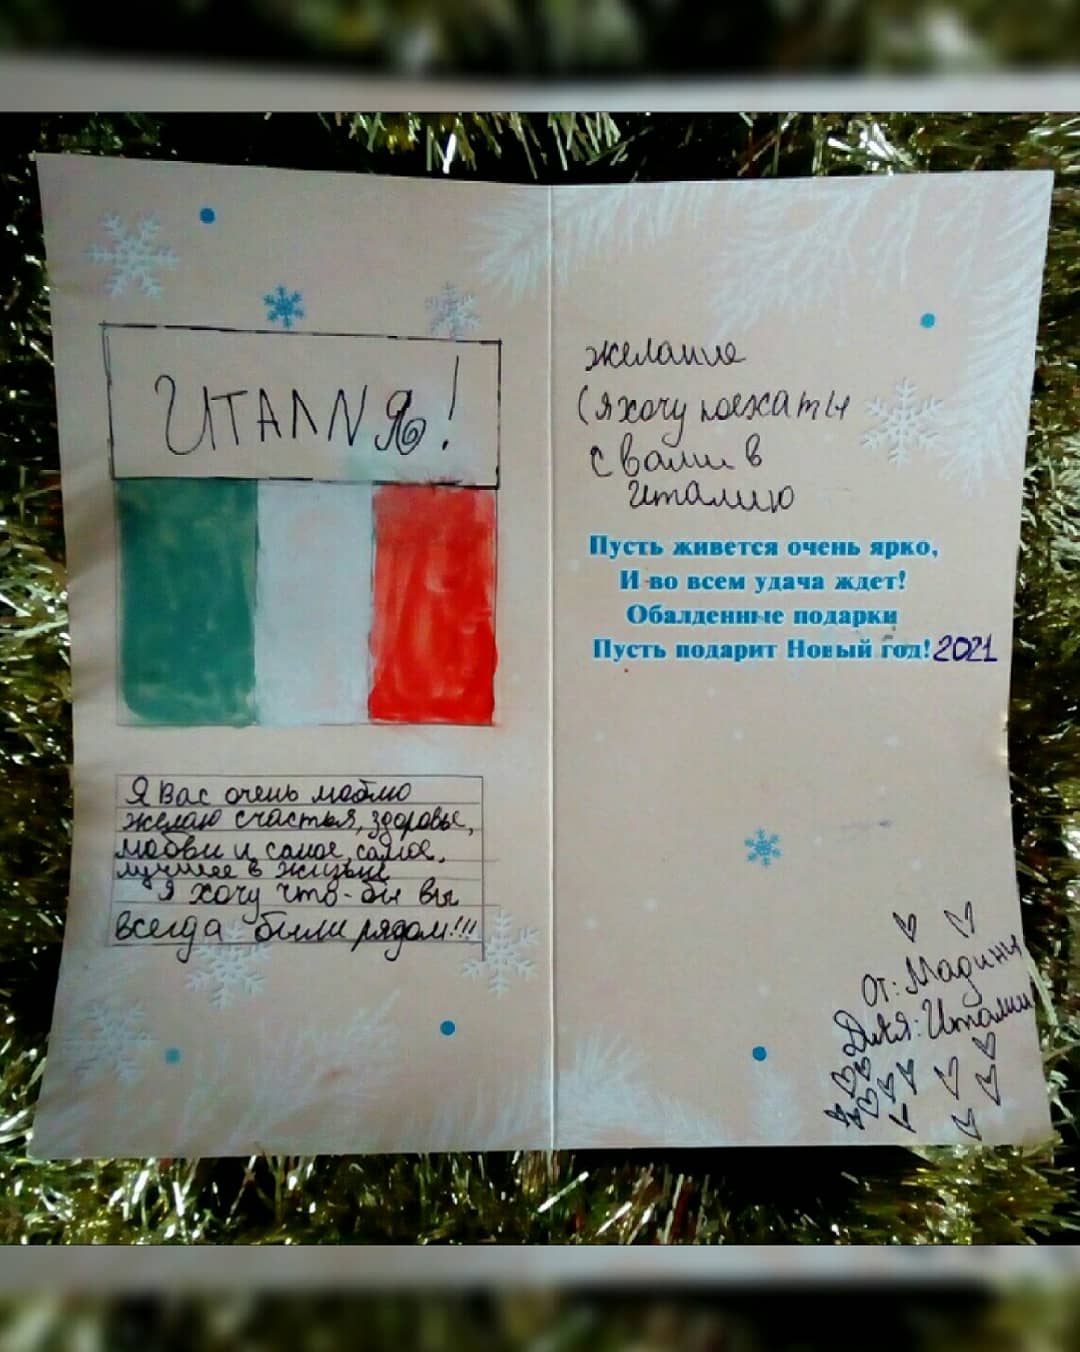 ИТАЛИЯ!
Я Вас очень люблю
желаю счастья, здоровье,
любви и самое, самое,
лучшее в жизьне
я хочу что-бы вы
всегда были рядом!!!
желание
(я хочу поехать
с вами в
италию
Пусть живется очень ярко,
И во всем удача ждет!
Обалденные подарки
Пусть подарит Новый год! 2021
От: Мадины
Для: Италии